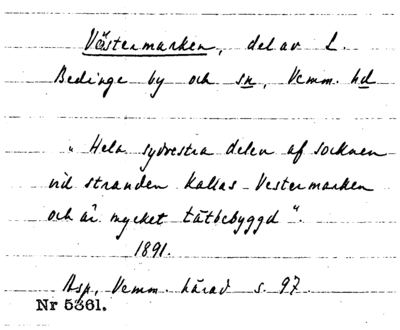 Västermarken, del av L.
Bedinge by och sn, Vemm. hd
"Hela sydvestra delen af socknen
vid stranden kallas Vestermarken
och är mycket tätbebyggd".
1891.
Asp, Vemm. härad s. 97.
Nr 5361.